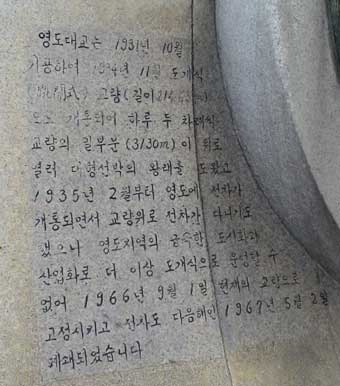 영도대교는 1931년 10월
기공하여 1934년 11월 도개식
교량(길이 214
도로 개통되어 하루 두 차례씩
교량의 일부분(3130m)이 위로
열려 대형선박의 왕래를 도왔고
1935년 2월부터 영도에 전차가
개통되면서 교량위로 전차가 다니기도
했으나 영도지역의 급속한 도시화과
산업화로 더 이상 도개식으로 운영할 수
없어 1966년 9월 1일 현재의 2량으로
고정시키고 전차도 다음해인 1967년 5월 2일
폐쇄되었습니다